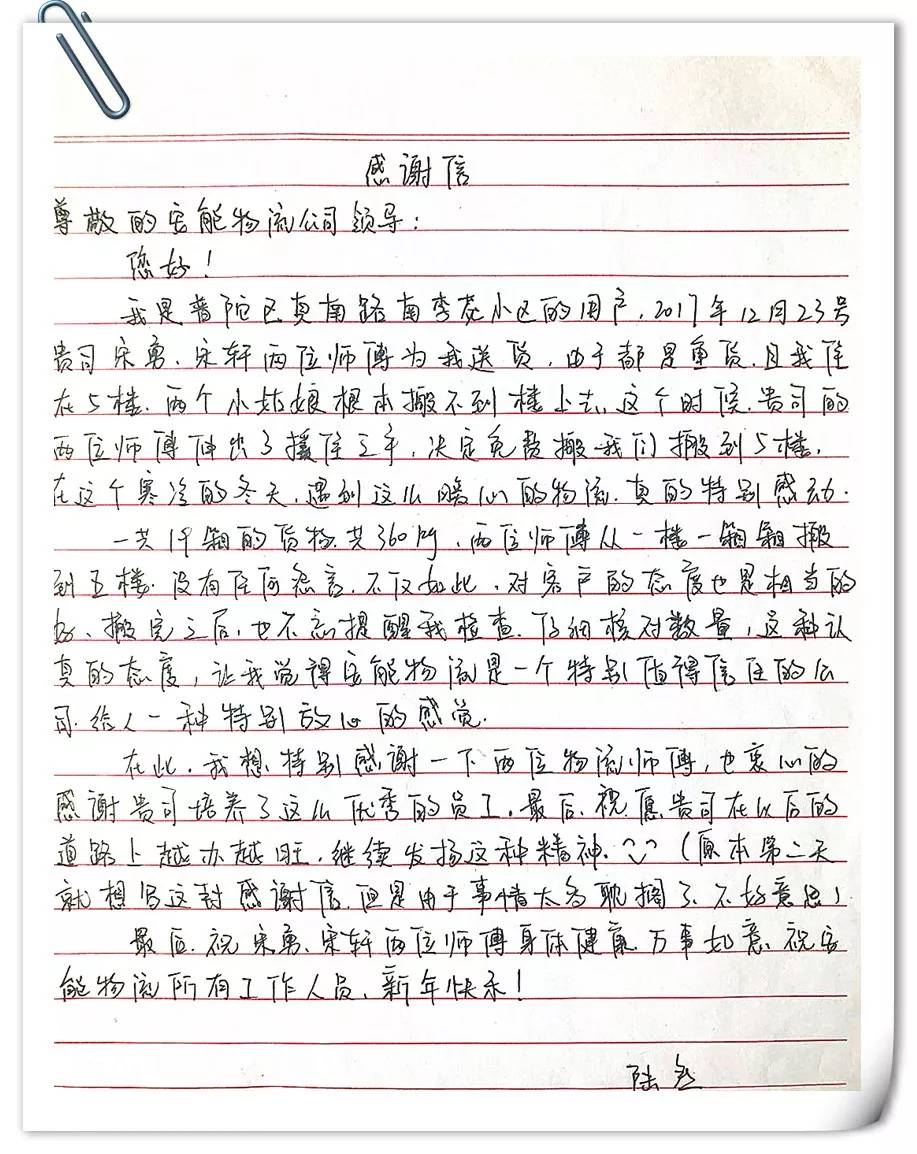 感谢信
尊敬的安能物流公司领导：
您好！
我是普陀区真南路南李苑小区的用户，2017年12月23号
贵司宋勇、宋轩两位师傅为我送货，由于都是重货，且我住
在5楼，两个小姑娘根本搬不到楼上去，这个时候，贵司的
两位师傅伸出了援住之手，决定免费搬我们搬到5楼，
在这个寒冷的冬天，遇到这么暖心的物流，真的特别感动．
一共19箱的货物，共360kg，两位师傅从一楼一箱箱搬
到五楼，没有任何怨言，不仅如此，对客户的态度也是相当的
好、搬完之后，也不忘提醒我检查、仔细核对数量，这种认
真的态度，让我觉得安能物流是一个特别值得信任的公
司，给人一种特别放心的感觉．
在此，我想特别感谢一下两位物流师傅，也衷心的
感谢贵司培养了这么优秀的员工，最后，祝愿贵司在以后的
道路上越办越旺，继续发扬这种精神．（原本第二天
就想写这封感谢信，但是由于事情太多耽搁了、不好意思）
最后，祝宋勇、宋轩两位师傅身体健康，万事如意，祝安
能物流所有工作人员，新年快乐！
陆